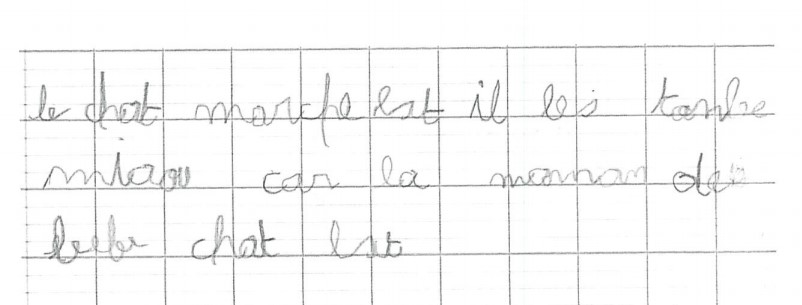 le chat marche est il les tombe
miaou car la maman des
bebe chat est